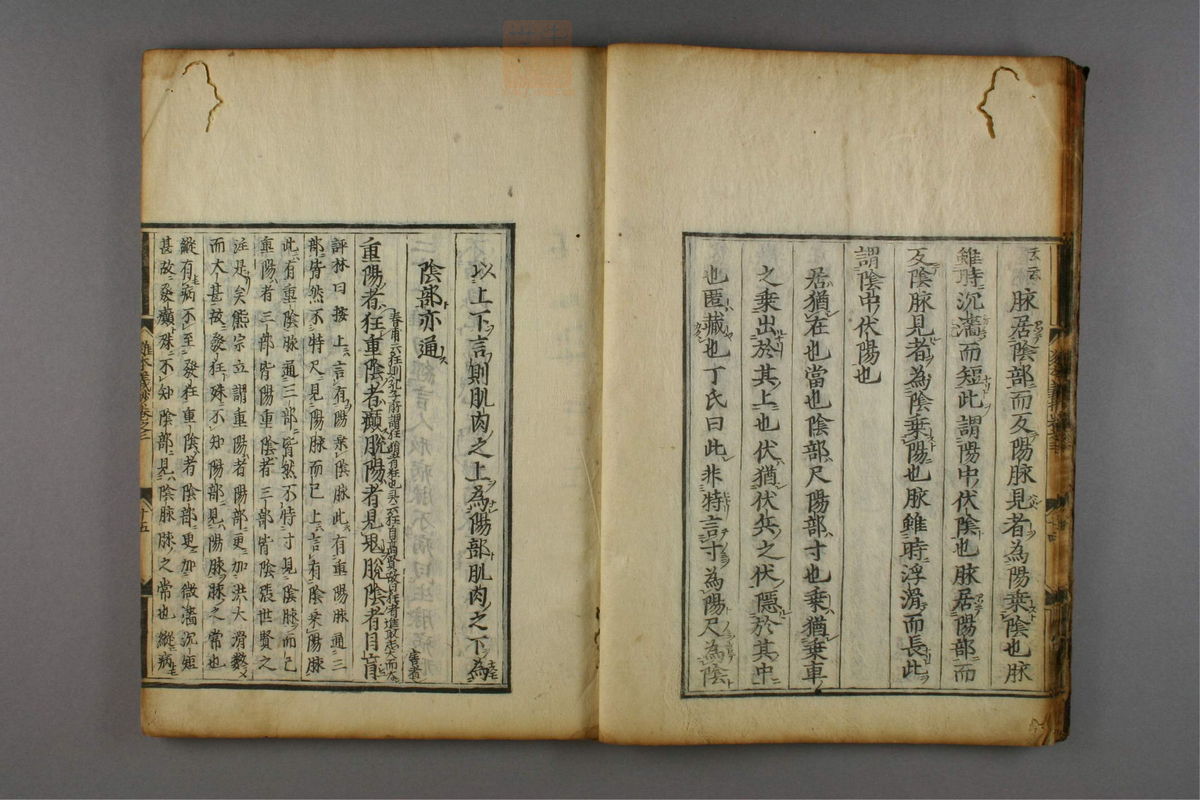 脉居陰部而反陽脉見者為陽乗陰也脉
雖時沉濇而短此謂陽中伏陰也脉居陽部而
反陰脉見者為陰乗陽也脉雖時浮滑而長此
謂陰中伏陽也
居猶在也當也陰部尺陽部寸也乗猶乗車
之乗出於其上也伏猶伏兵之伏隱於其中
也匿藏也丁氏曰此非特言寸為陽尺為陰
以上下言則肌肉之上為陽部肌肉之下為
陰部亦通
重陽者狂重陰者癲脱陽者見鬼脱陰者目盲
評林曰按上言有陽乗陰脉此有重陽脉通三
部皆然不特尺見陽脉而已上言有陰乗陽脉
此有重陰脉通三部皆然不特寸見陰脉而已
重陽者三部皆陽重陰者三部皆陰張世賢之
注是矣熊宗立謂重陽者陽部更加洪大滑數
而大甚故發狂殊不知陽部見陽脉脉之常也
縱有病不至發狂重陰者陰部更加微濇沉短
甚故發癲殊不知陰部見陰脉脉之常也縱病
十五